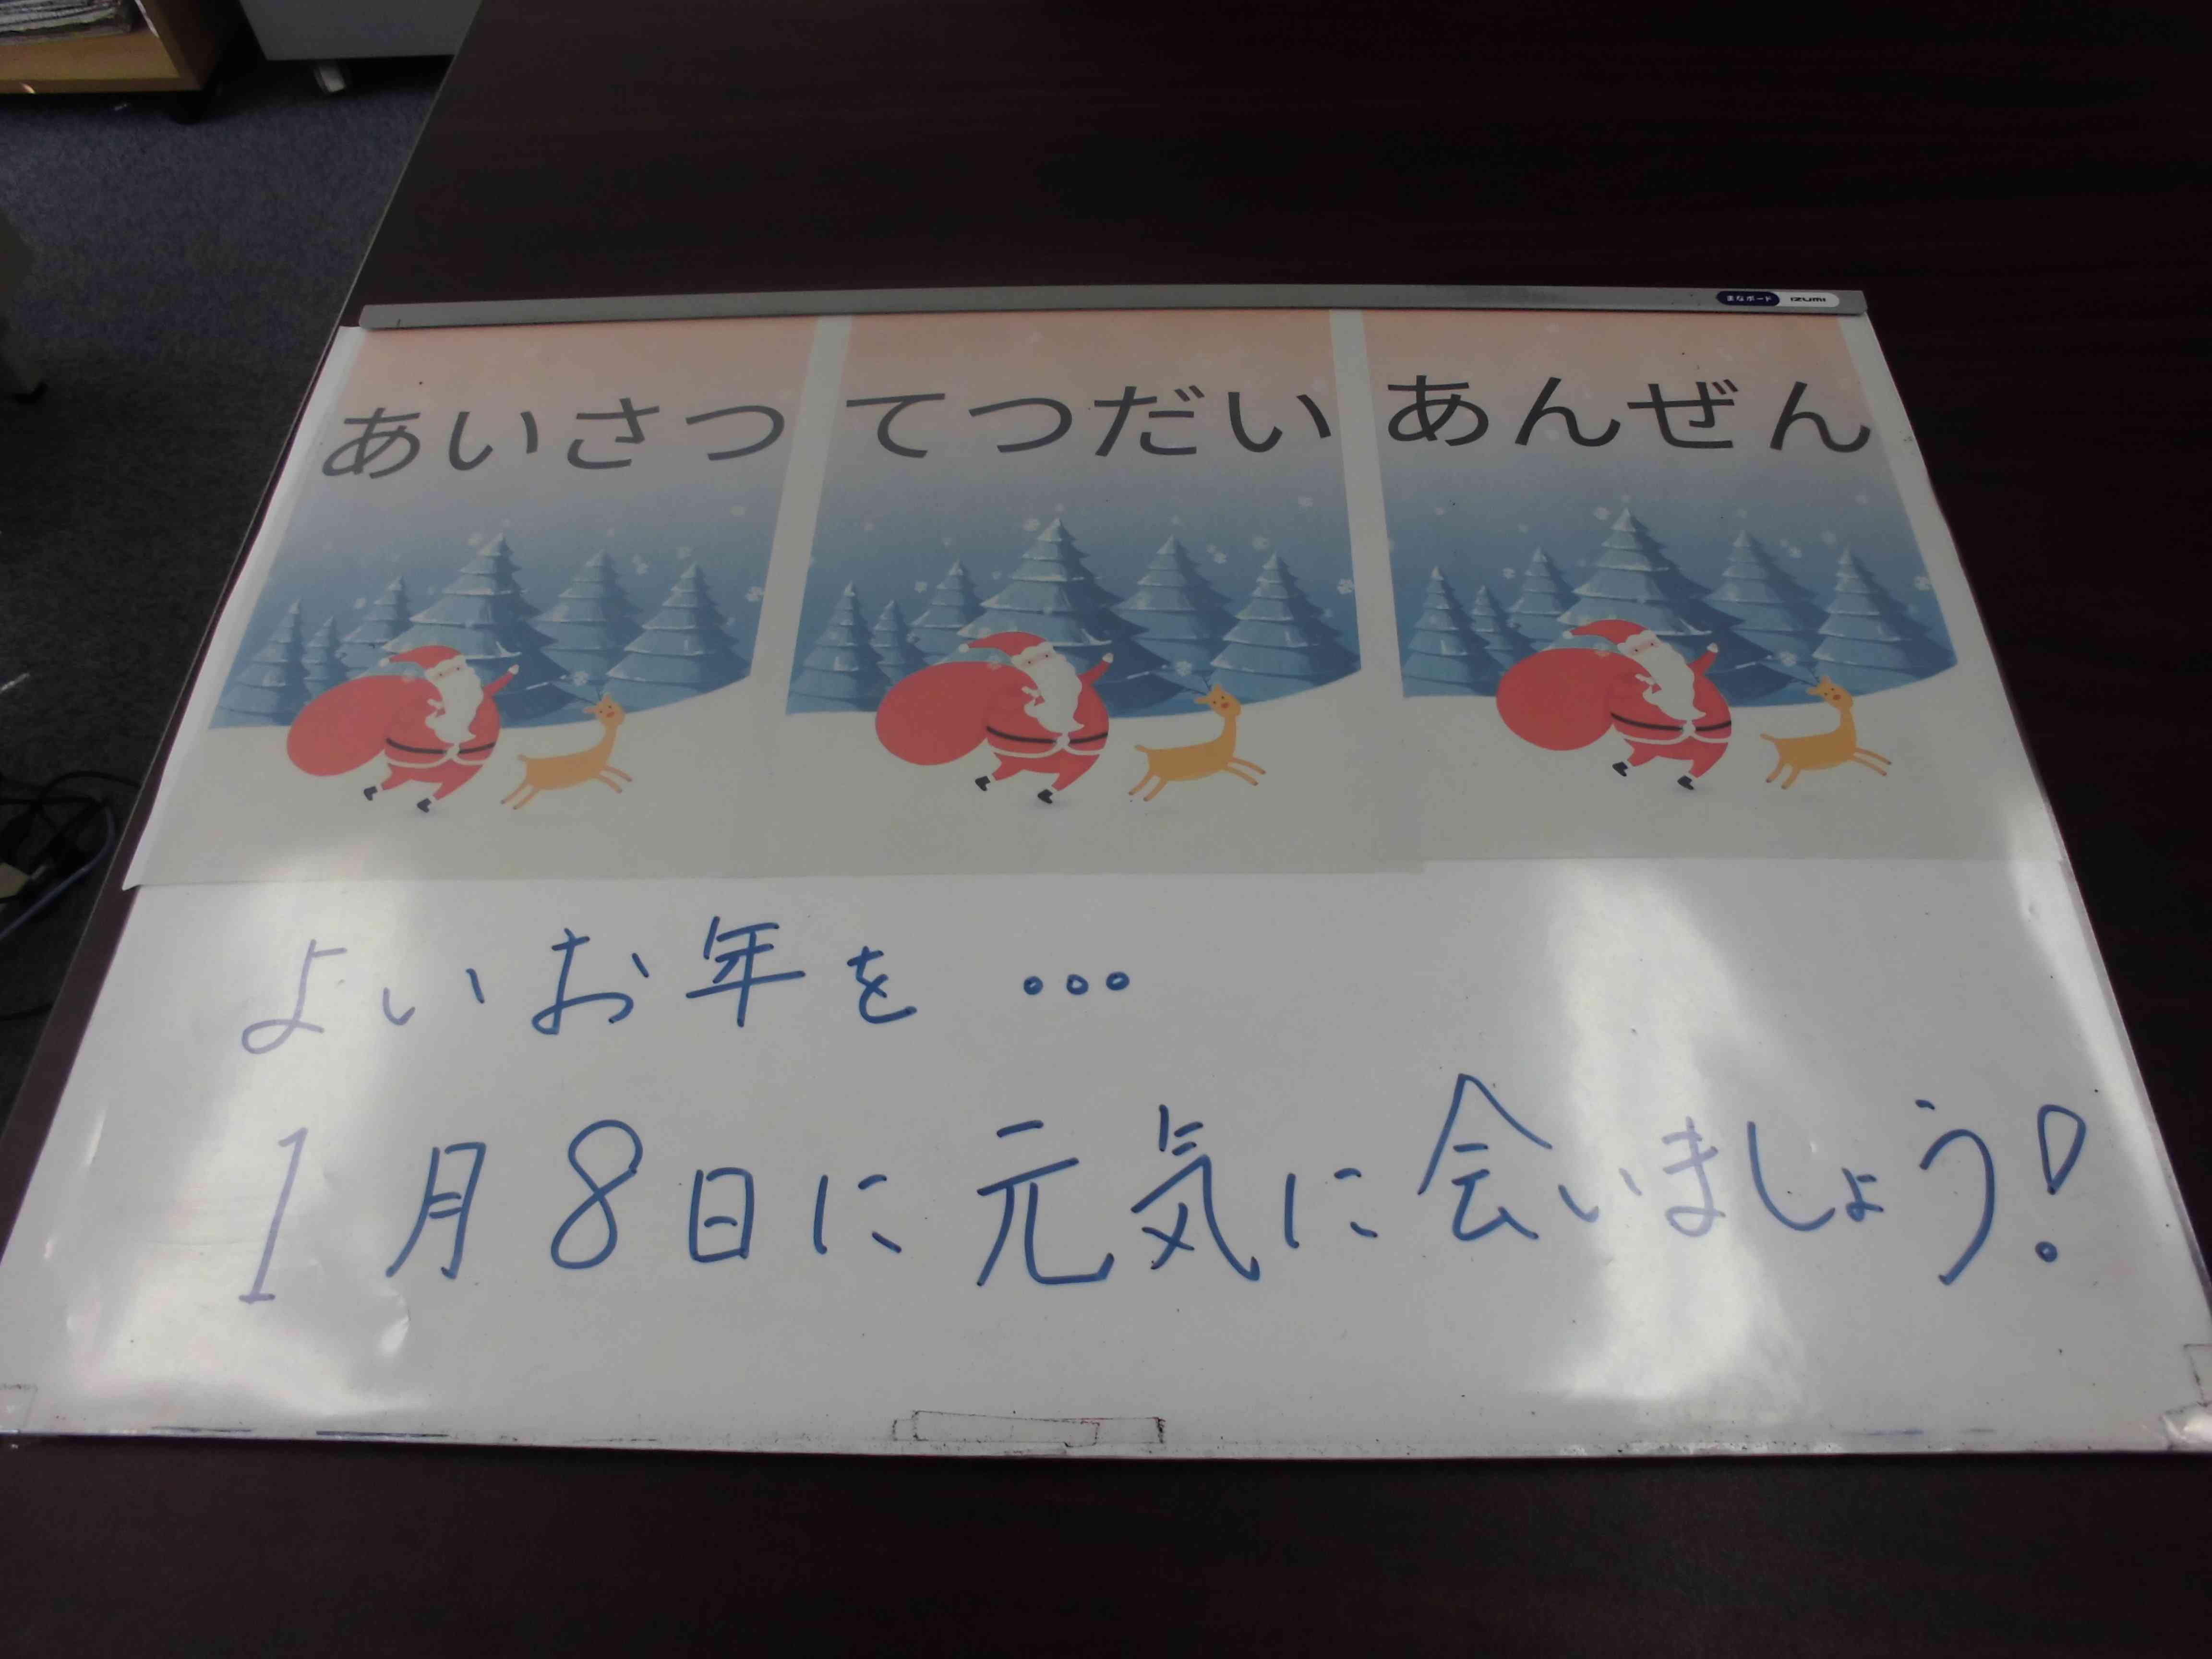 まなボード IZUMI
あいさつ てつだい あんぜん
よいお年を…
1月8日に元気に会いましょう!